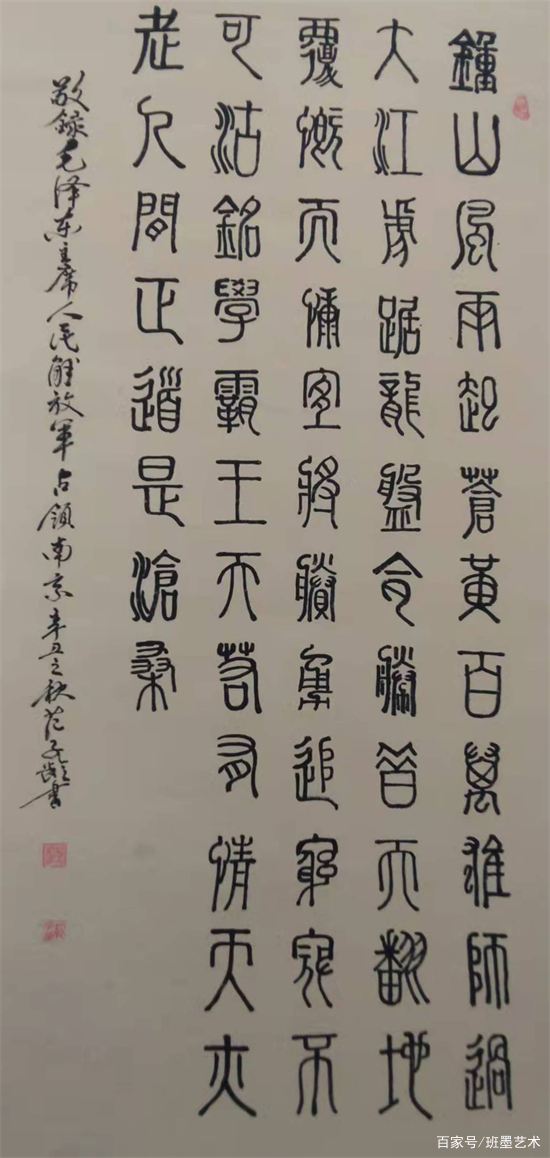 鐘山風雨起蒼黃百萬雄師過
大江虎踞龍盤今勝昔天翻地
覆慨而慷宜將賸勇追窮寇不
可沽銘學霸王天若有情天亦
老人間正道是滄桑
敬録毛泽东主席人民解放軍占領南京辛丑之秋范子書
百家号/班墨艺术